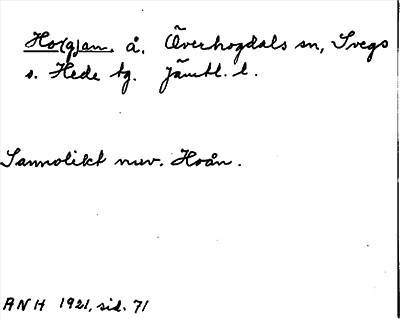 Ho(g)an, å. Överhogdals sn, Svegs
o. Hede tg. Jämtl. l.
Sannolikt nuv. Hoån.
ANH 1921, sid. 71